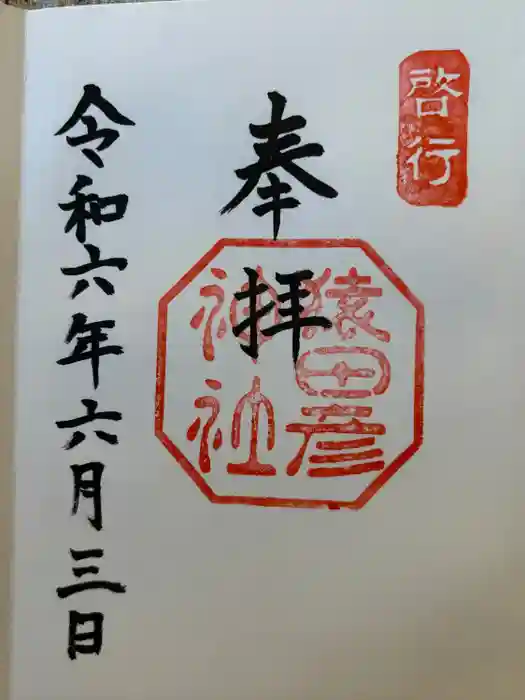 啓行
奉拝
猿田彦
神社
令和六年六月三日